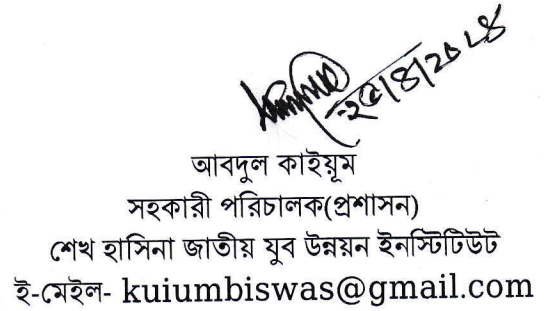 ২৫/৪/২০২৪
আবদুল কাইয়ূম
সহকারী পরিচালক(প্রশাসন)
শেখ হাসিনা জাতীয় যুব উন্নয়ন ইনস্টিটিউট
ই-মেইল- kuiumbiswas@gmail.com